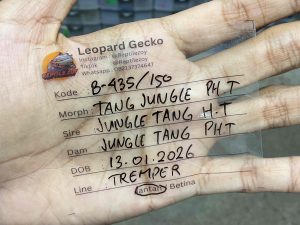 Leopard Gecko
Instagram : @Reptilezoy
Tiktok : @Reptilezoy
Whatsapp : 082137374647
Kode : B-435/150
Morph : TANG JUNGLE PH T
Sire : JUNGLE TANG H.T
Dam : JUNGLE TANG PHT
DOB : 13.01.2026
Line : TREMPER
Jantan / Betina